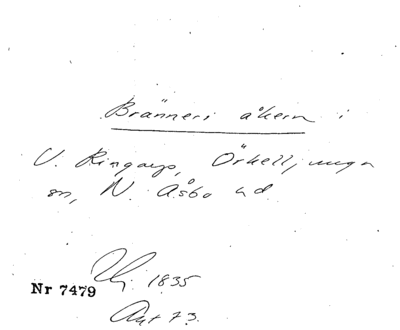 Bränneri åkern i
V. Ringarp, Örkelljunga
sn, N. Åsbo hd
1835
Nr 7479
Akt 73.